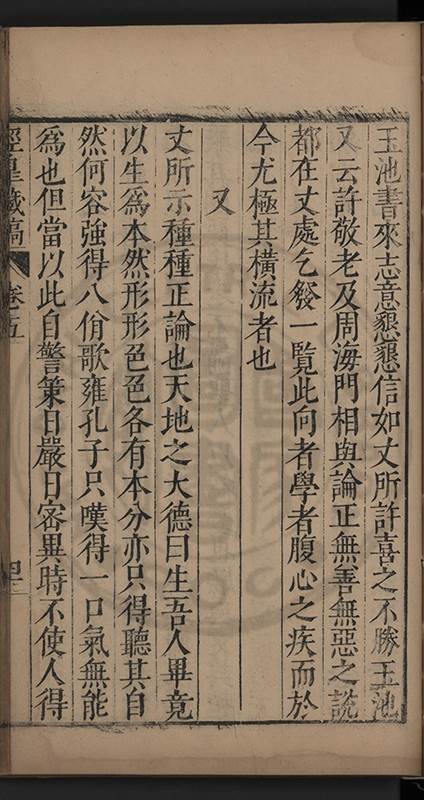 玉池書來志意懇懇信如丈所許喜之不勝玉池
又云許敬老及周海門相與論正無善無惡之說
都在丈處乞發一覽此向者學者腹心之疾而於
今尤極其橫流者也
又
丈所示種種正論也天地之大德曰生吾人畢竟
以生爲本然形形色色各有本分亦只得聽其自
然何容強得八佾歌雍孔子只嘆得一口氣無能
爲也但當以此自警策日嚴日密異時不使人得
涇臯藏稿 卷五